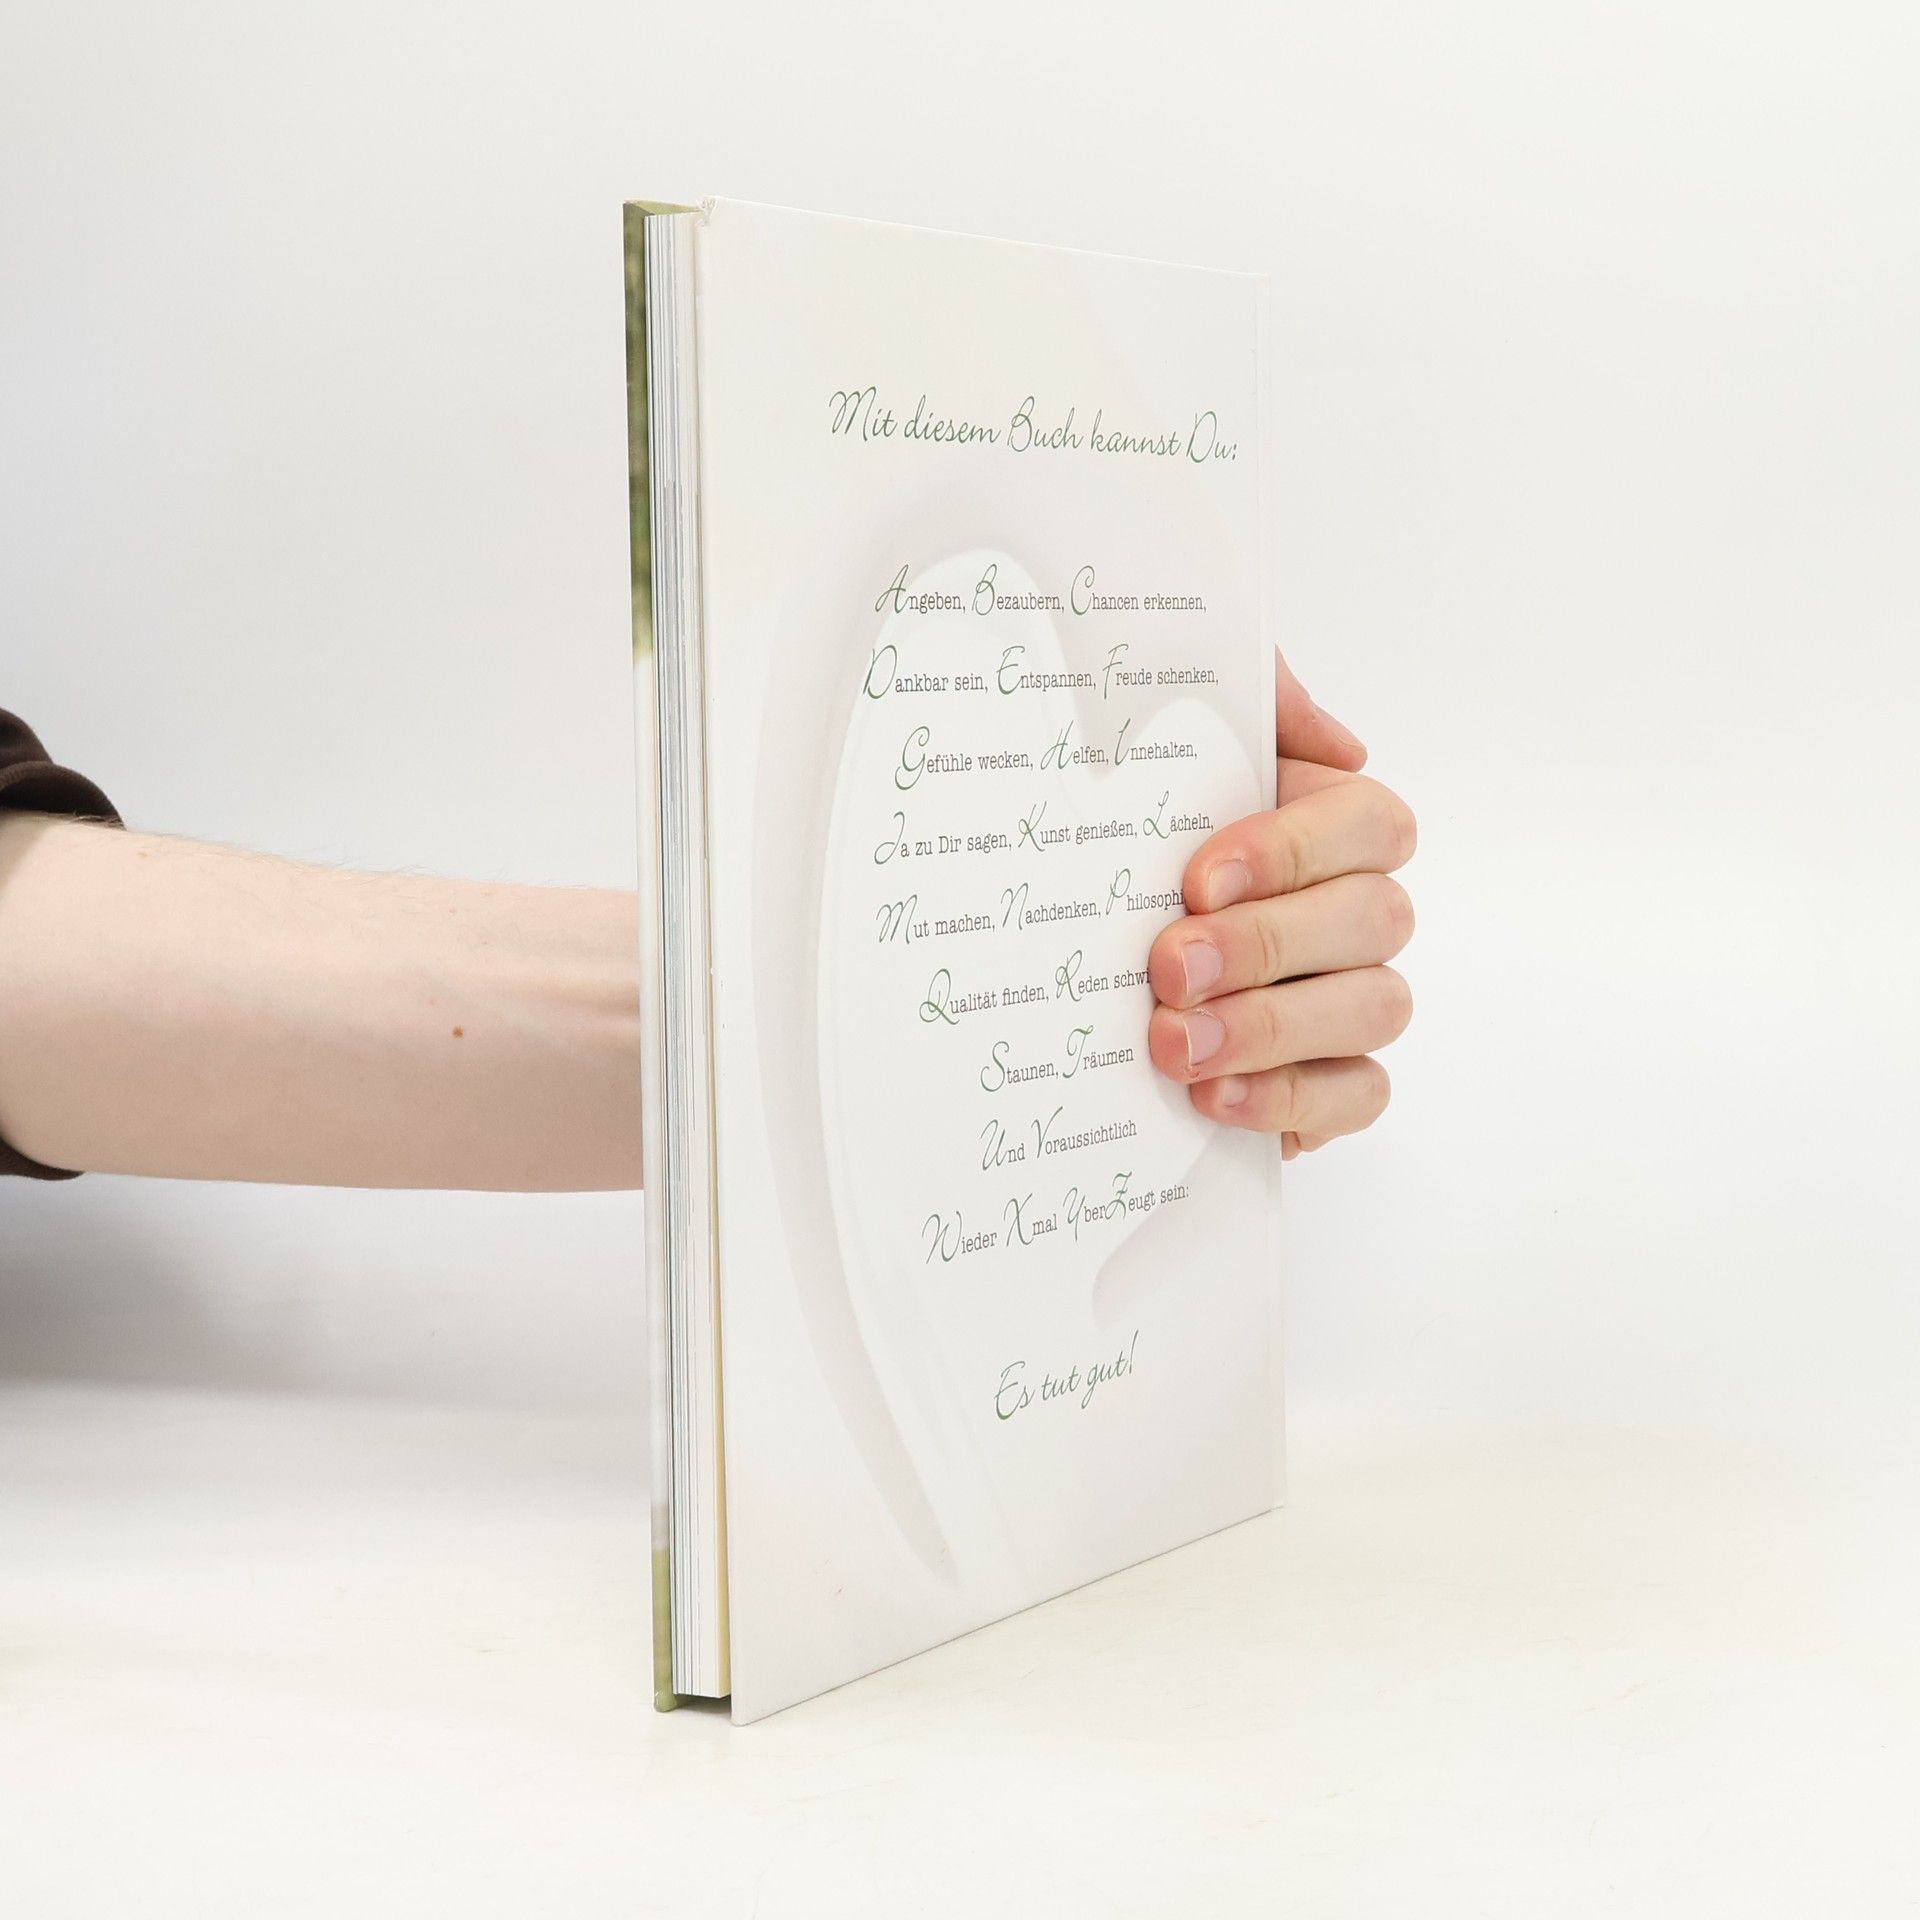 Mit diesem Buch kannst Du:
Angeben, Bezaubern, Chancen erkennen,
Dankbar sein, Entspannen, Freude schenken,
Gefühle wecken, Helfen, Innehalten,
Ja zu Dir sagen, Kunst genießen, Lächeln,
Mut machen, Nachdenken,
Qualität finden, Reden
Staunen, Träumen
Und Voraussichtlich
Wieder Xmal YberZeugt sein:
Es tut gut!